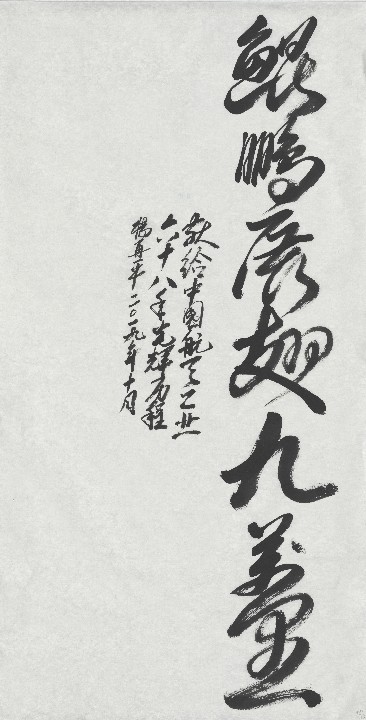 鲲鹏展翅九万里
献给中国航天工业
六十八年光辉历程
杨再平二〇一九年十月